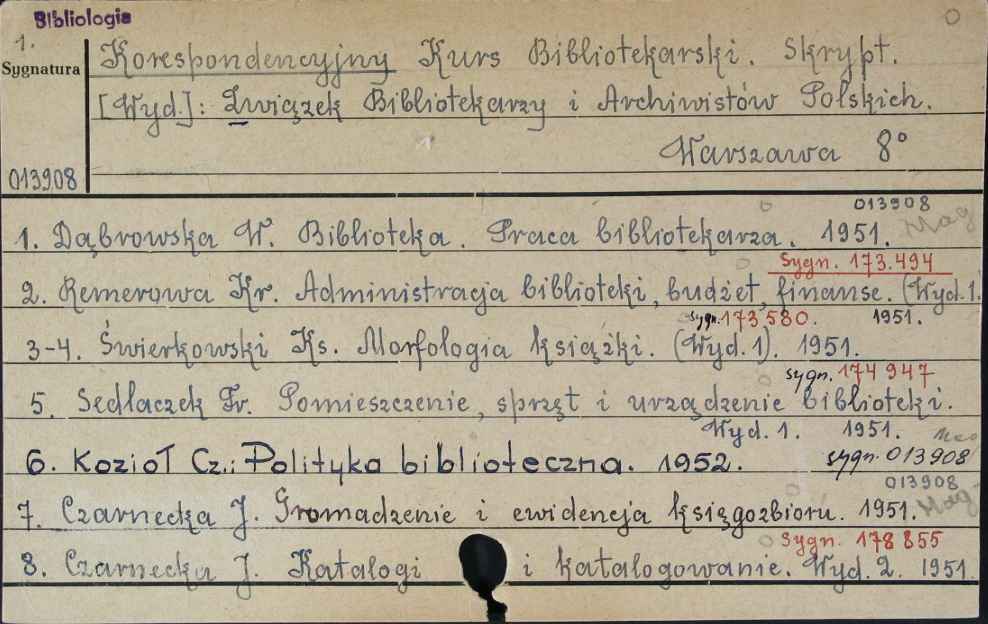 Bibliologia
1.
Sygnatura
Korespondencyjny Kurs Bibliotekarski. Skrypt.
[Wyd.]: Związek Bibliotekarzy i Archiwistów Polskich.
Warszawa 8°
013908
013908
Mag
1. Dąbrowska W. Biblioteka. Praca bibliotekarza. 1951.
Sygn. 173.494
2. Remerowa Kr. Administracja biblioteki, budżet, finanse. (Wyd. 1.
sygn. 173580. 1951.
3-4. Świerkowski Ks. Morfologia książki. (Wyd. 1). 1951.
sygn. 174947
5. Sedlaczek Fr. Pomieszczenie, sprzęt i urządzenie biblioteki.
Wyd. 1. 1951.
6. Kozioł Cz.: Polityka biblioteczna. 1952. sygn. 013908
013908
Mag
7. Czarnecka J. Gromadzenie i ewidencja księgozbioru. 1951.
Sygn. 178855
8. Czarnecka J. Katalogi i katalogowanie. Wyd. 2. 1951.